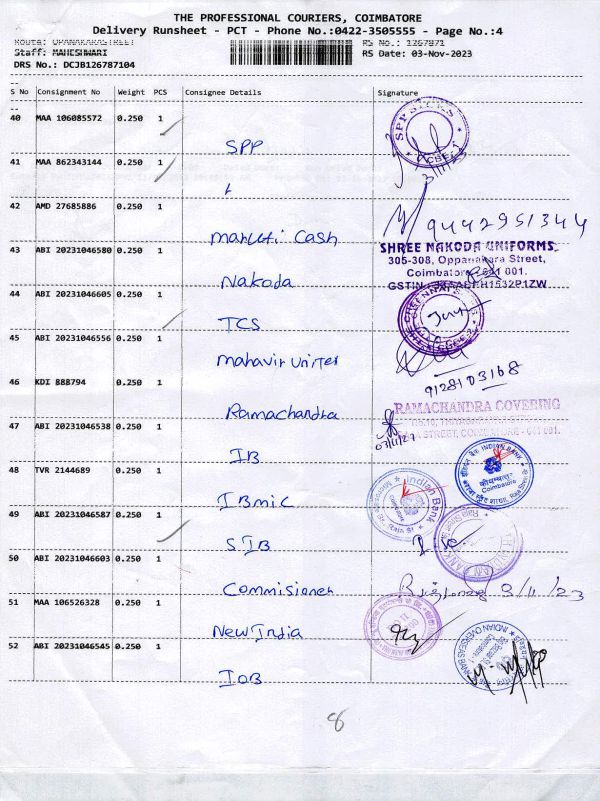 THE PROFESSIONAL COURIERS, COIMBATORE
Delivery Runsheet - PCT - Phone No.:0422-3505555 - Page No.:4
Route: OPANAKARASTREET RS No.: 1267871
Staff: MAHESHWARI RS Date: 03-Nov-2023
DRS No.: DCJB126787104
S No Consignment No Weight PCS Consignee Details Signature
40 MAA 106085572 0.250 1
SPP
SPP SILKS
CBE-1
3/11/23
41 MAA 862343144 0.250 1
42 AMD 27685886 0.250 1
Maruti Cash
9442951344
43 ABI 20231046580 0.250 1
Nakoda
SHREE NAKODA UNIFORMS
305-308, Oppanakara Street,
Coimbatore - 641 001.
44 ABI 20231046605 0.250 1
TCS
THE CHENNAI
45 ABI 20231046556 0.250 1
Mahavir Uniter
9128103168
46 KDI 888794 0.250 1
Ramachandra
RAMACHANDRA COVERING
STREET, COIMBATORE - 641 001.
47 ABI 20231046538 0.250 1
IB
INDIAN BANK
कोयम्बत्तूर
Coimbatore
48 TVR 2144689 0.250 1
IBMIC
Indian Bank
49 ABI 20231046587 0.250 1
SIB
INDIAN
50 ABI 20231046603 0.250 1
Commisioner
3/11/23
51 MAA 106526328 0.250 1
New India
52 ABI 20231046545 0.250 1
IOB
INDIAN OVERSEAS BANK
8